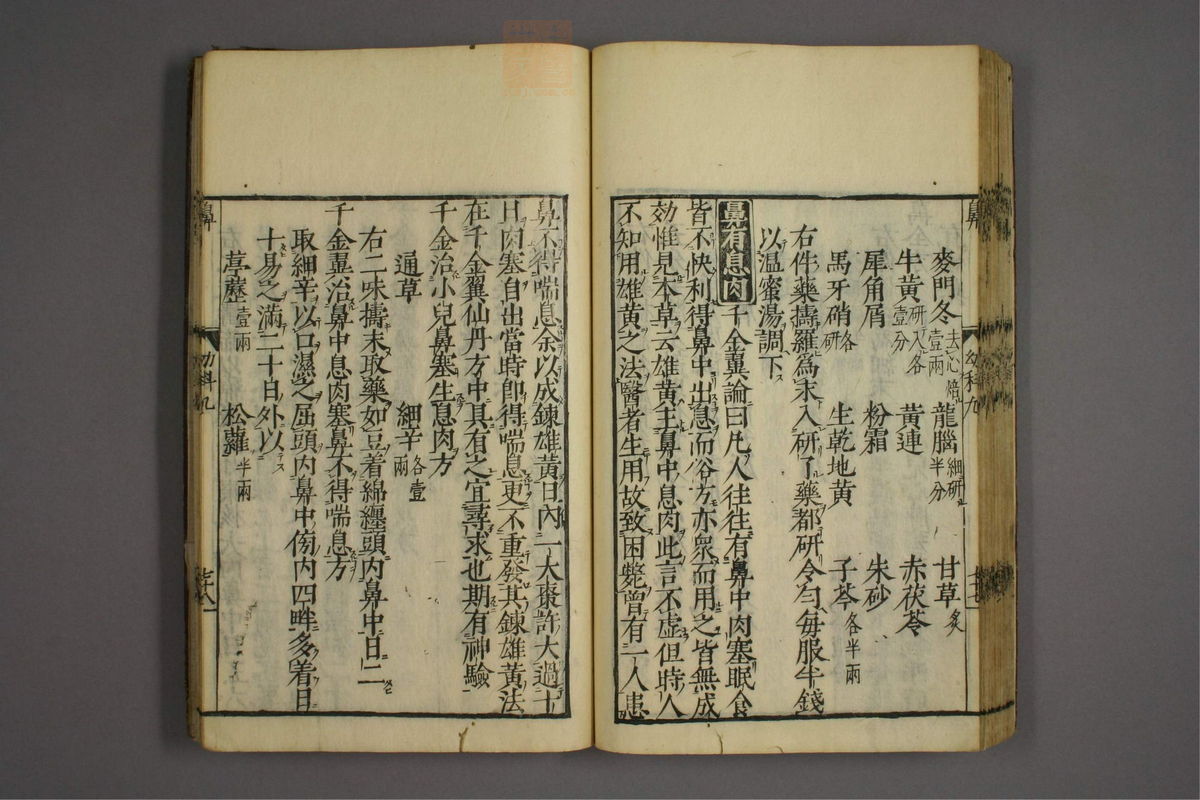 麥門冬去心焙壹兩 龍腦細研半分 甘草炙
牛黃研入各壹分 黃連 赤茯苓
犀角屑 粉霜 朱砂
馬牙硝各研 生乾地黃 子芩各半兩
右件藥擣羅爲末入研了藥都研令勻每服半錢
以温蜜湯調下
鼻有息肉 千金翼論曰凡人往往有鼻中肉塞眠食
皆不快利得鼻中出息而俗方亦衆而用之皆無成
効惟見本草云雄黃主鼻中息肉此言不虛但時人
不知用雄黃之法醫者生用故致困斃曾有一人患
鼻不得喘息余以成鍊雄黃日內一大棗許大過十
日肉塞自出當時即得喘息更不重發其鍊雄黃法
在千金翼仙丹方中具有之宜尋求也期有神驗
千金治小兒鼻塞生息肉方
通草 細辛各壹兩
右二味擣末取藥如豆着綿纏頭內鼻中日二
千金翼治鼻中息肉塞鼻不得喘息方
取細辛以口濕之屈頭內鼻中傍內四畔多着日
十易之滿二十日外以
葶藶壹兩 松蘿半兩
鼻
幼科九